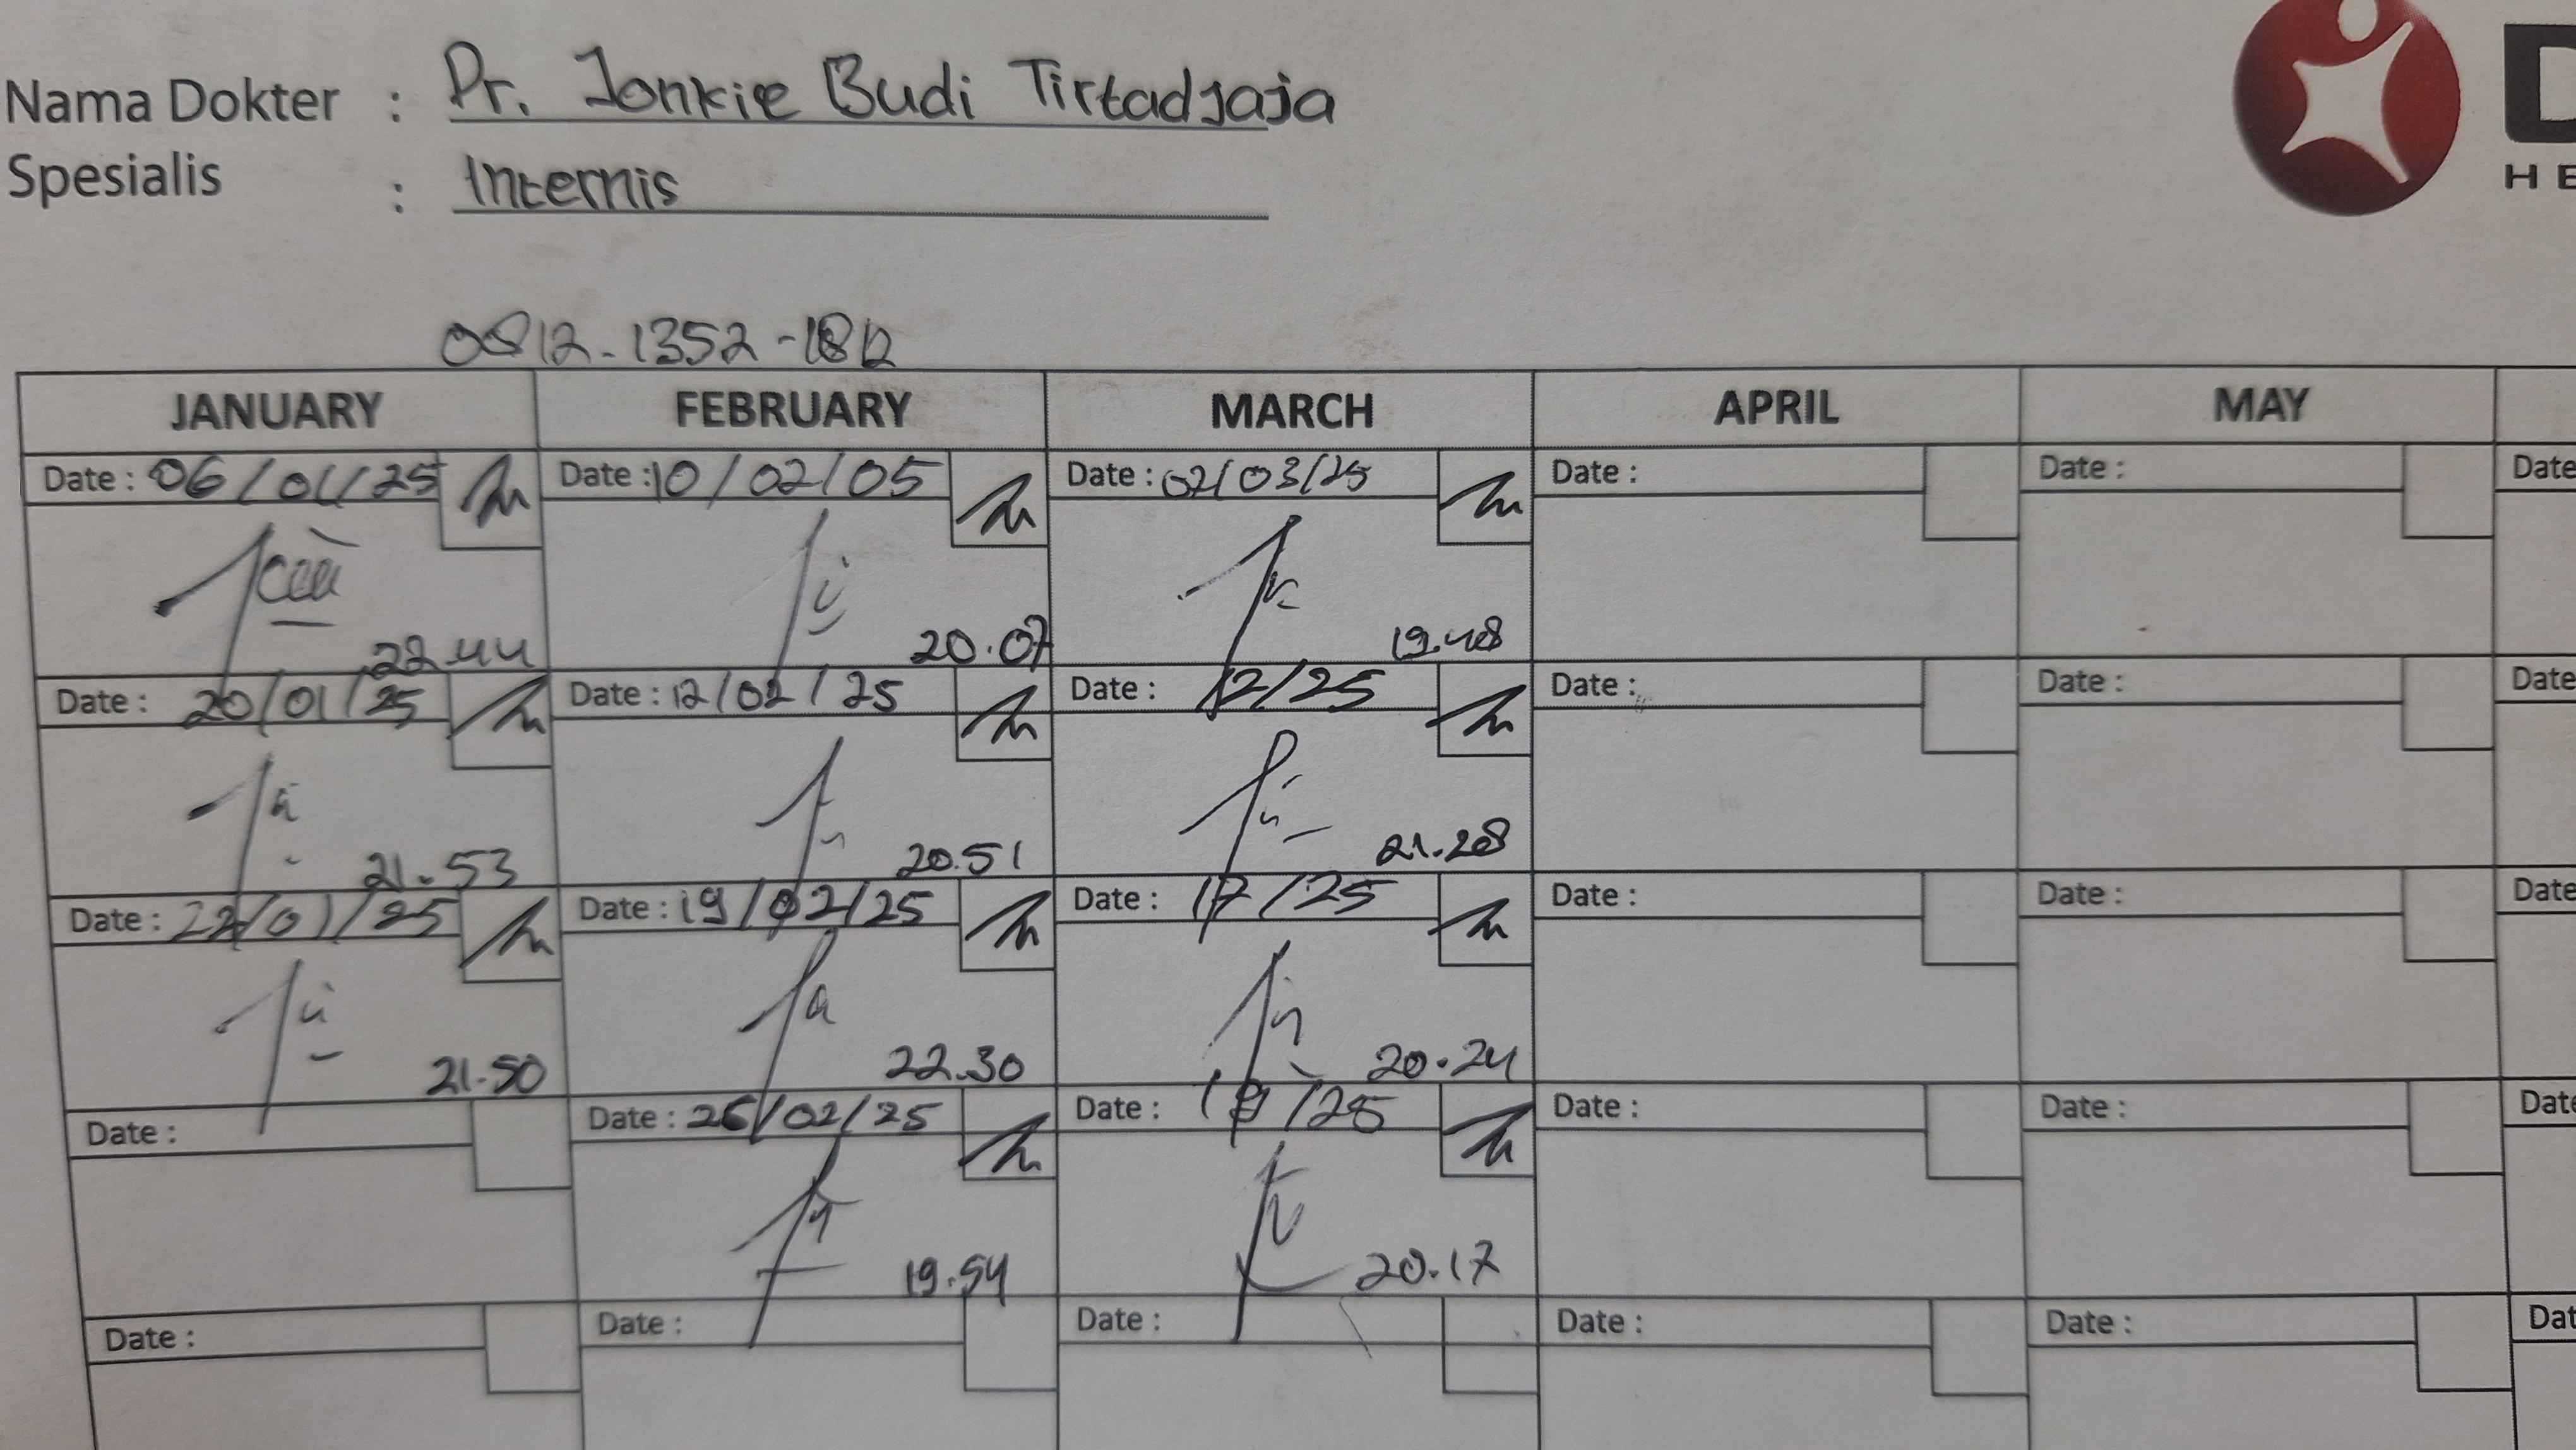 Nama Dokter : Dr. Jonkie Budi Tirtadjaja
Spesialis : Internis
D
HE
0812-1352-1812
JANUARY FEBRUARY MARCH APRIL MAY
Date : 06/01/25 Date : 10/02/05 Date : 02/03/25 Date : Date : Date
22.44 20.07 19.48
Date : 20/01/25 Date : 12/02/25 Date : 12/25 Date : Date : Date
21.53 20.51 21.28
Date : 22/01/25 Date : 19/02/25 Date : 17/25 Date : Date : Date
21.50 22.30 20.24
Date : Date : 26/02/25 Date : 19/25 Date : Date : Date
19.54 20.17
Date : Date : Date : Date : Date : Dat